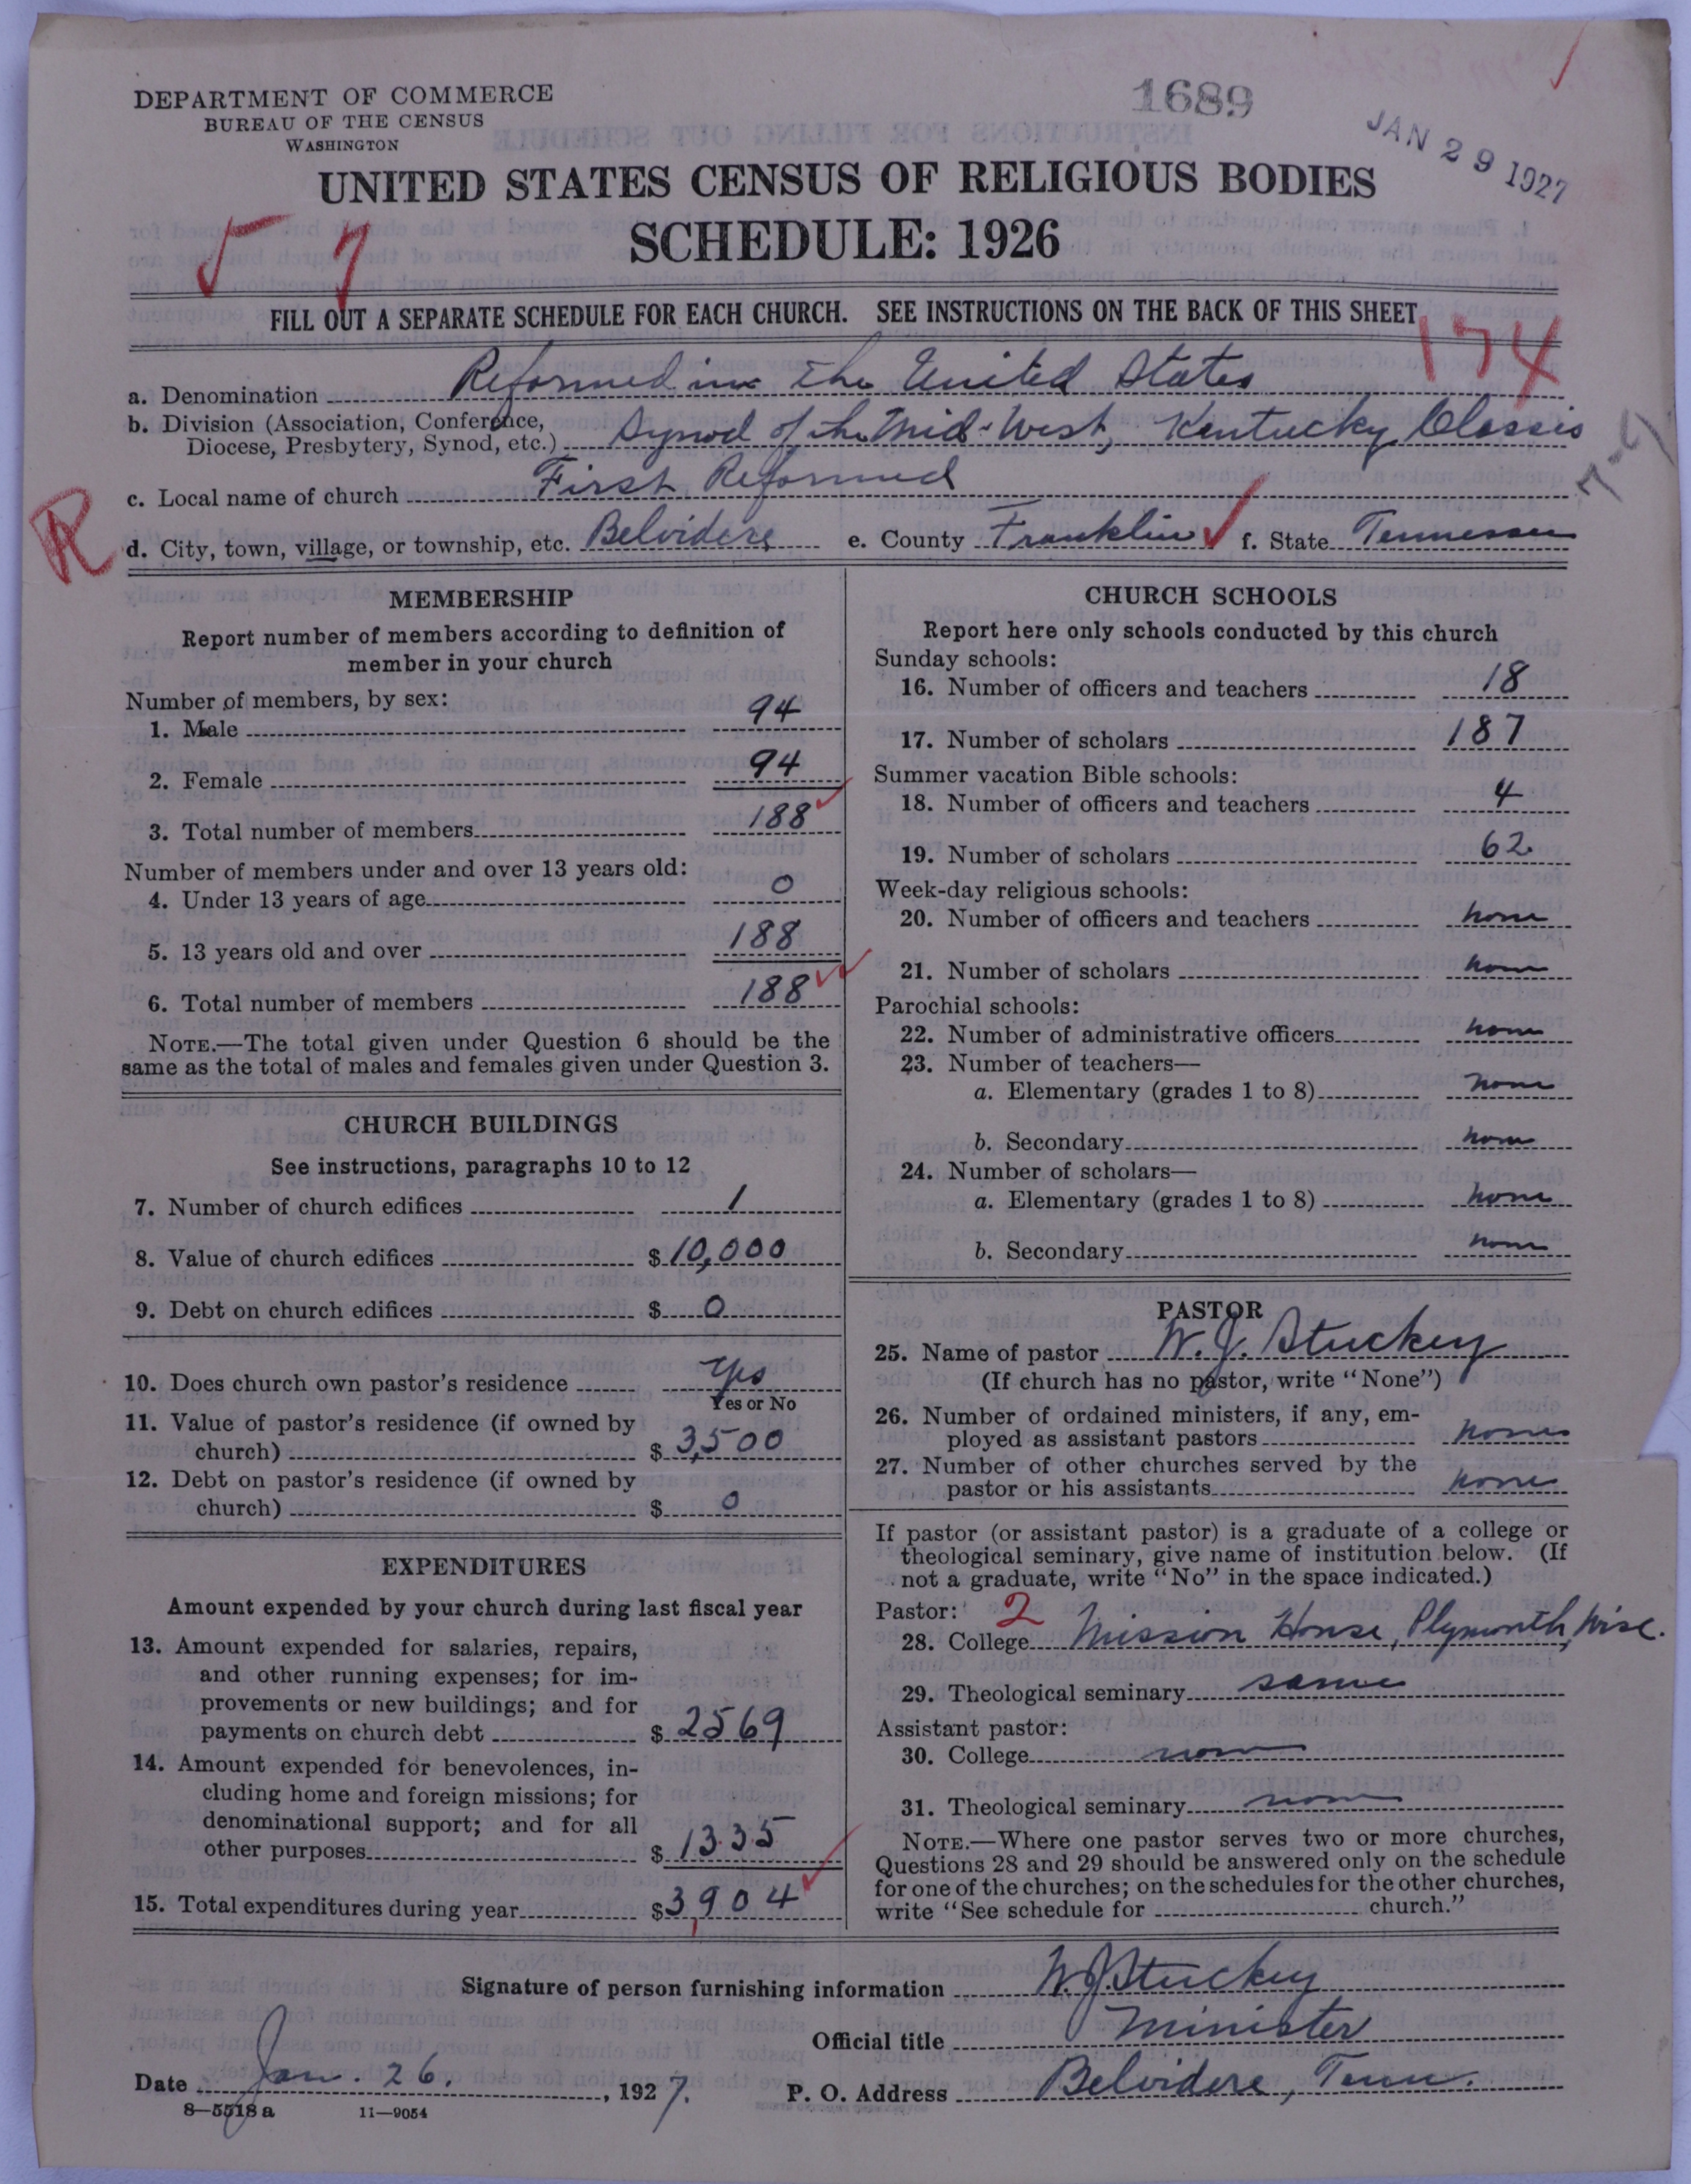 DEPARTMENT OF COMMERCE
BUREAU OF THE CENSUS
WASHINGTON
1689
JAN 29 1927
UNITED STATES CENSUS OF RELIGIOUS BODIES
SCHEDULE: 1926
7
FILL OUT A SEPARATE SCHEDULE FOR EACH CHURCH. SEE INSTRUCTIONS ON THE BACK OF THIS SHEET
174
a. Denomination Reformed in the United States
b. Division (Association, Conference,
Diocese, Presbytery, Synod, etc.) Synod of the Mid-West, Kentucky Classis
c. Local name of church First Reformed
R
d. City, town, village, or township, etc. Belvidere e. County Franklin f. State Tennessee
MEMBERSHIP
Report number of members according to definition of
member in your church
Number of members, by sex:
1. Male 94
2. Female 94
3. Total number of members 188
Number of members under and over 13 years old:
4. Under 13 years of age 0
5. 13 years old and over 188
6. Total number of members 188
NOTE.—The total given under Question 6 should be the
same as the total of males and females given under Question 3.
CHURCH BUILDINGS
See instructions, paragraphs 10 to 12
7. Number of church edifices 1
8. Value of church edifices $ 10,000
9. Debt on church edifices $ 0
10. Does church own pastor's residence Yes
Yes or No
11. Value of pastor's residence (if owned by
church) $ 3,500
12. Debt on pastor's residence (if owned by
church) $ 0
EXPENDITURES
Amount expended by your church during last fiscal year
13. Amount expended for salaries, repairs,
and other running expenses; for im-
provements or new buildings; and for
payments on church debt $ 2569
14. Amount expended for benevolences, in-
cluding home and foreign missions; for
denominational support; and for all
other purposes $ 1335
15. Total expenditures during year $ 3,904
CHURCH SCHOOLS
Report here only schools conducted by this church
Sunday schools:
16. Number of officers and teachers 18
17. Number of scholars 187
Summer vacation Bible schools:
18. Number of officers and teachers 4
19. Number of scholars 62
Week-day religious schools:
20. Number of officers and teachers none
21. Number of scholars none
Parochial schools:
22. Number of administrative officers none
23. Number of teachers—
a. Elementary (grades 1 to 8) none
b. Secondary none
24. Number of scholars—
a. Elementary (grades 1 to 8) none
b. Secondary none
PASTOR
25. Name of pastor W. J. Stuckey
(If church has no pastor, write "None")
26. Number of ordained ministers, if any, em-
ployed as assistant pastors none
27. Number of other churches served by the
pastor or his assistants none
If pastor (or assistant pastor) is a graduate of a college or
theological seminary, give name of institution below. (If
not a graduate, write "No" in the space indicated.)
Pastor: 2
28. College Mission House, Plymouth, Wisc.
29. Theological seminary same
Assistant pastor:
30. College none
31. Theological seminary none
NOTE.—Where one pastor serves two or more churches,
Questions 28 and 29 should be answered only on the schedule
for one of the churches; on the schedules for the other churches,
write "See schedule for church."
Signature of person furnishing information W. J. Stuckey
Official title Minister
Date Jan. 26, 1927. P. O. Address Belvidere, Tenn.
8—5518 a 11—9054